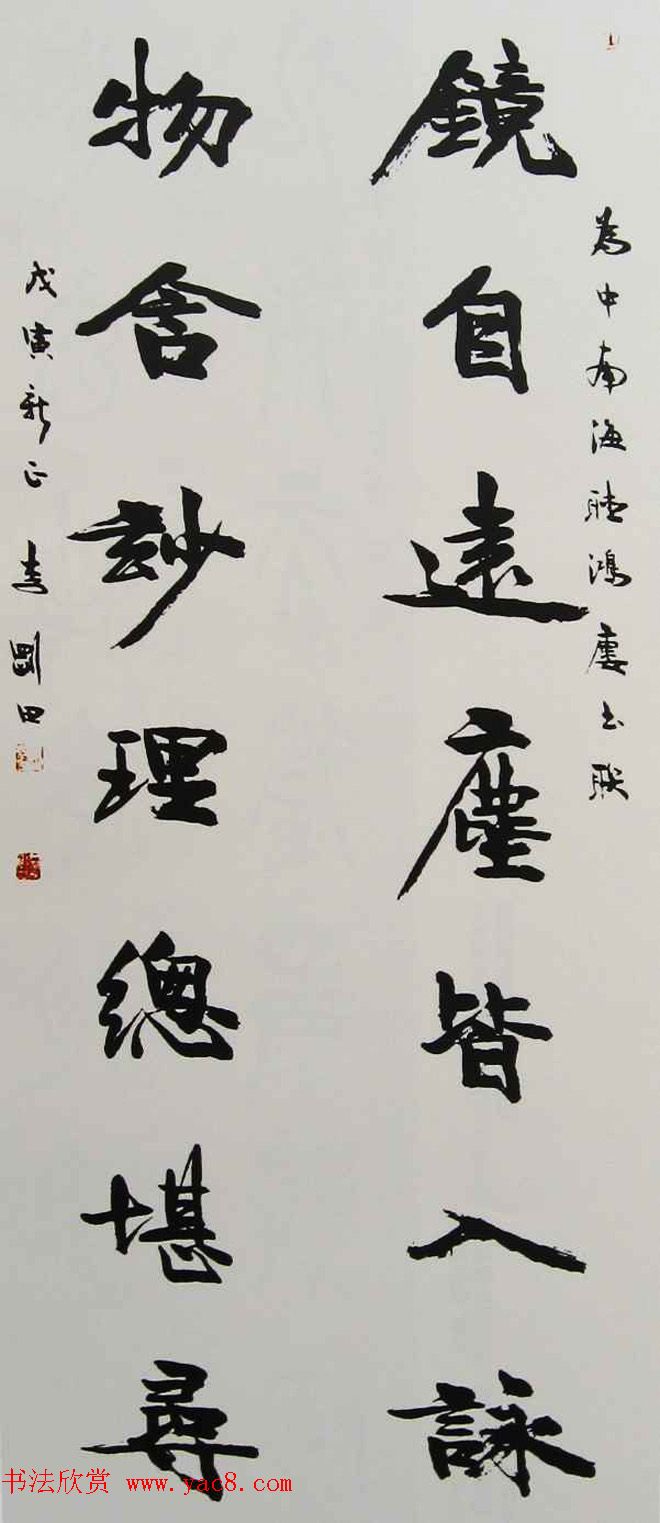 為中南海聽鴻廔书联
鏡自遠塵皆入詠
物含玅理總堪尋
戊寅新正 李剛田
书法欣赏 www.yac8.com